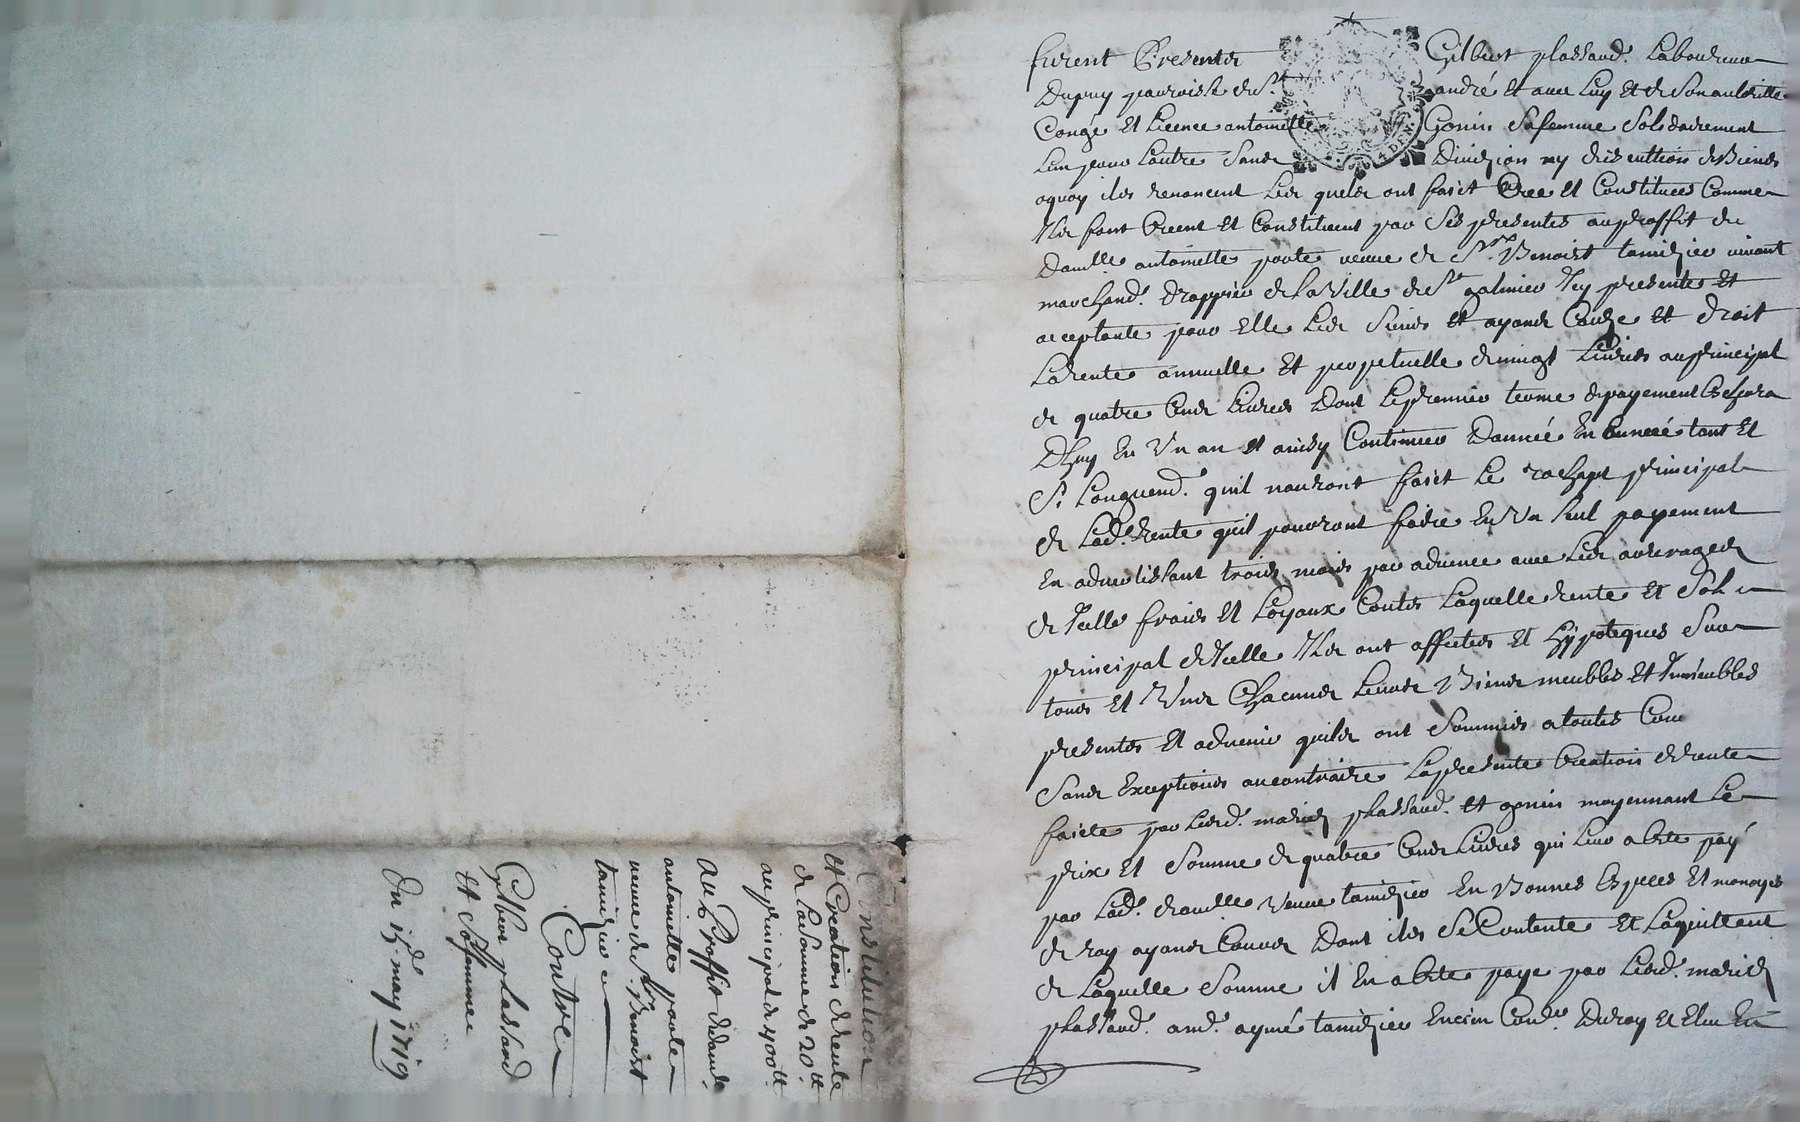 furent Presents Gilbert plassard Laboureur
Dupuy parroisse de St andré et avec Luy et de Son authoritté
Congé et Licence antoinette Gonin Safemme Solidairement
Lun pour Lautre Sans Divizion ny discution de Biens
aquoy ils renoncent Les quels ont faict Créé et Constitués Comme
Ils font Créent et Constituent par Ses presentes auproffit de
Damlle antoinette porte veuve de Sr Benoist tamizier vivant
marchand drappier de La Ville de St galmier Icy presente et
acceptante pour Elle Les Siens et ayans Cauze et droit
Larente annuelle et perpetuelle de vingt Livres auprincipal
de quatre Cens Livres Dont Lepremier terme depayement Eschera
Dhuy En Un an et ainsy Continuer Dannée En année tant et
Sy Longuemd quil nauront faict Le rachapt principal
de Lad. Rente quil pourront faire En Un Seul payement
En advertissant trois mois par advence avec Les arrerages
de Icelle frais et Loyaux Couts Laquelle rente et Sol
principal de Icelle Ils ont affectés et hypoteques Sur
tous et Uns Chacuns Leurs Biens meubles et Immeubles
presents et advenir quils ont Soumis atoutes Cour
Sans Exceptions aucontraire Lapresente Creation de rente
faicte par Lesd. mariés plassard et gonin moyennant Le
prix et Somme de quatre Cens Livres qui Leur a Eté payé
par Lad. damlle veuve tamizier En Bonnes Especes et monoyes
de roy ayans Cours Dont ils Se Contente et Laquittent
de Laquelle Somme il En a Eté payé par Lesd. mariés
plassard and. aymé tamizier Encien Conr. Duroy et Elu En
Constitution
et Création de rente
de La Somme de 20 tt
au principal de 400 tt
au Proffit de damlle
antoinette porte
veuve de Sr Benoist
tamizier
Contre
Gilber plassard
et Safemme
Du 15 may 1719